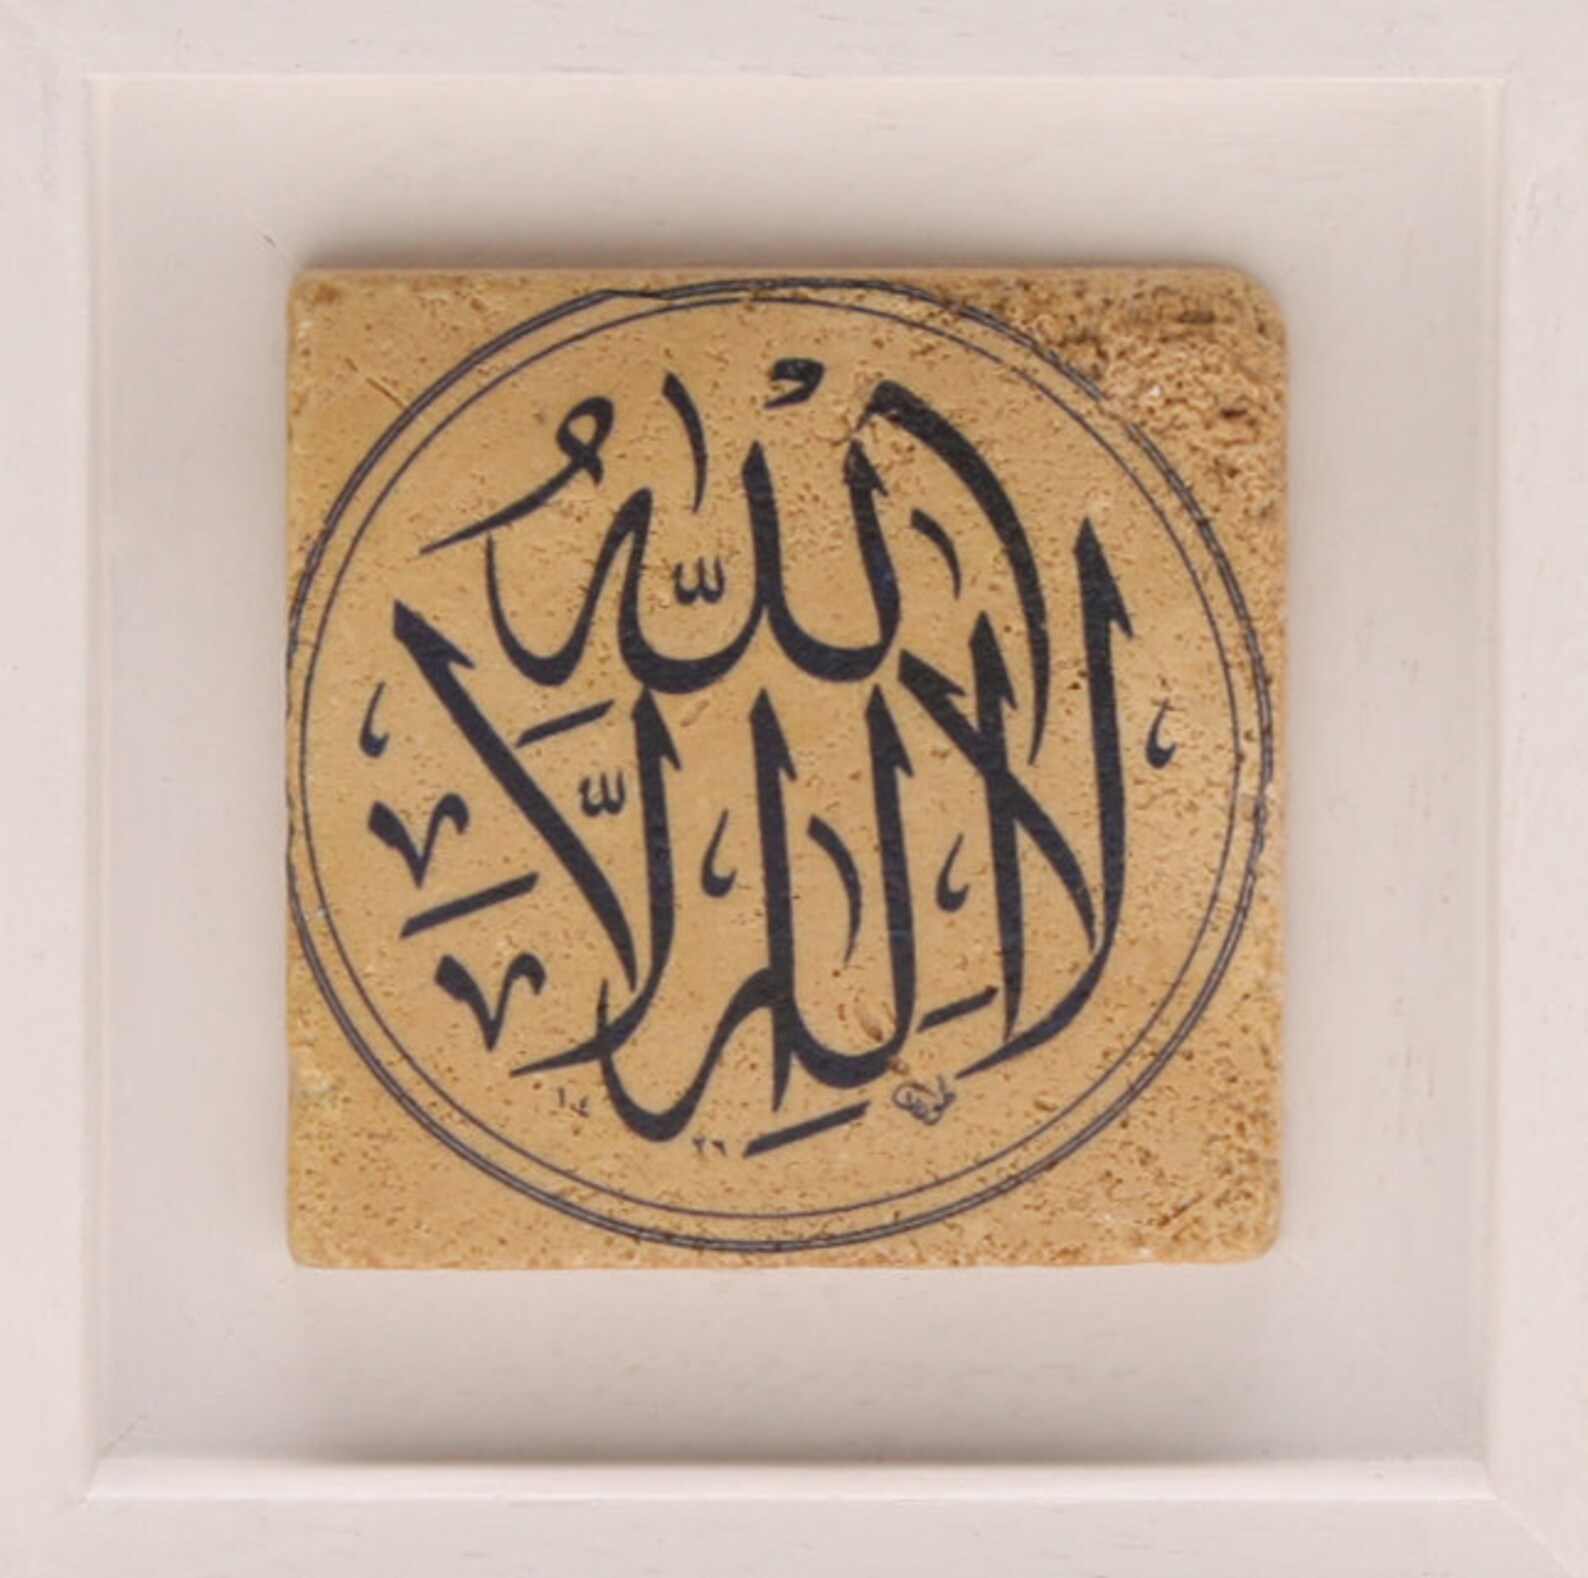 لا إله إلا الله
١٤٢٦